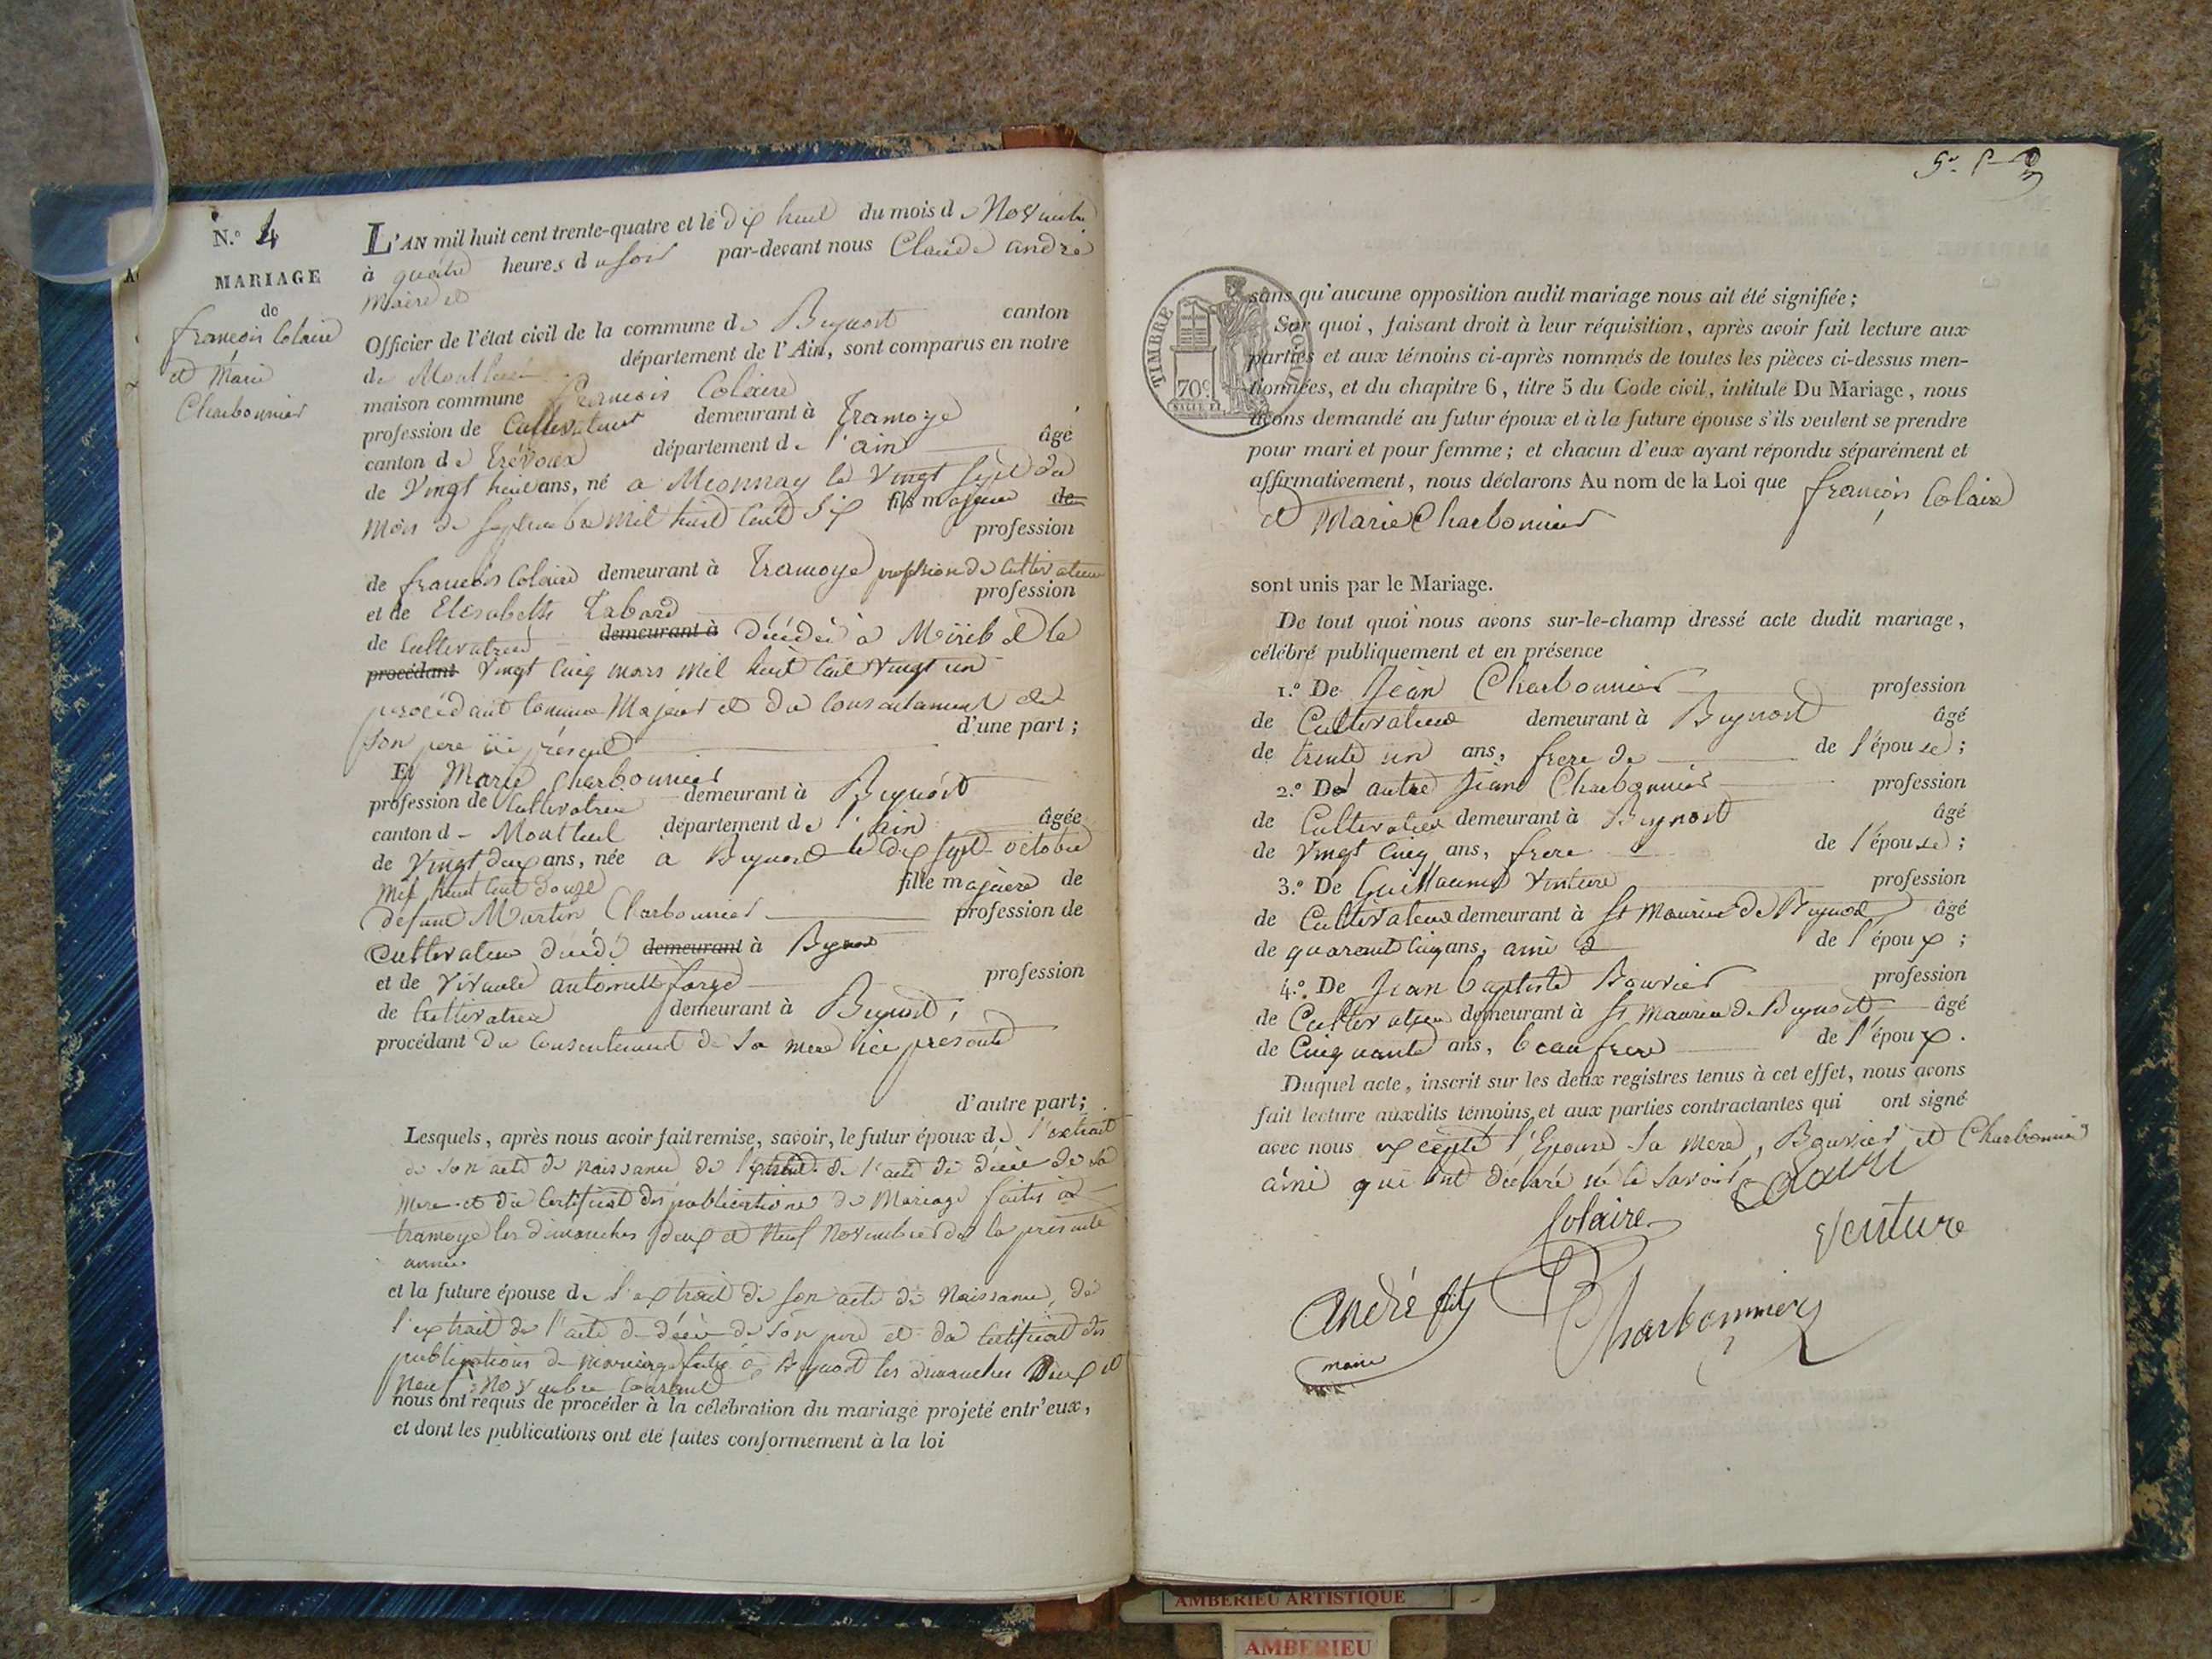 N.º 4
MARIAGE
de
françois Colaire
et Marie
Charbonnier
L'AN mil huit cent trente-quatre et le dix huit du mois de Novembre
à quatre heures du soir par-devant nous Claude andré
Maire et
Officier de l'état civil de la commune de Beynost canton
de Montluel département de l'Ain, sont comparus en notre
maison commune françois Colaire
profession de Cultivateur demeurant à Tramoye
canton de Trévoux département de l'ain âgé
de Vingt huit ans, né a Mionnay le Vingt sept du
mois de septembre mil huit cent Six fils majeur de
profession
de françois Colaire demeurant à Tramoye profession de Cultivateur
et de Elisabeth Tabard profession
de Cultivatrice demeurant à décédée a Miribel le
procédant Vingt Cinq mars mil huit Cent Vingt un
procédant Comme Majeur et du Consentement de
son pere ici présent d'une part;
Et Marie Charbonnier
profession de Cultivatrice demeurant à Beynost
canton de Montluel département de l'ain âgée
de Vingt deux ans, née a Beynost le dix sept octobre
mil huit Cent douze fille majeure de
défunt Martin Charbonnier profession de
Cultivateur décédé demeurant à Beynost
et de Vivante antoinette forge profession
de Cultivatrice demeurant à Beynost,
procédant du Consentement de sa mere ici présente
d'autre part;
Lesquels, après nous avoir fait remise, savoir, le futur époux de l'extrait
de son acte de naissance de l'extrait de l'acte de décès de sa
mere et du Certificat des publications de Mariage faites à
tramoye les dimanches deux et Neuf Novembre de la présente
année
et la future épouse de l'extrait de son acte de Naissance, de
l'extrait de l'acte de décès de son pere et du Certificat des
publications de mariage faites à Beynost les dimanches Deux et
neuf Novembre Courant
nous ont requis de procéder à la célébration du mariage projeté entr'eux,
et dont les publications ont été faites conformement à la loi
TIMBRE ROYAL
70c
sans qu'aucune opposition audit mariage nous ait été signifiée;
Sur quoi, faisant droit à leur réquisition, après avoir fait lecture aux
parties et aux témoins ci-après nommés de toutes les pièces ci-dessus men-
tionnées, et du chapitre 6, titre 5 du Code civil, intitulé Du Mariage, nous
avons demandé au futur époux et à la future épouse s'ils veulent se prendre
pour mari et pour femme; et chacun d'eux ayant répondu séparément et
affirmativement, nous déclarons Au nom de la Loi que françois Colaire
et Marie Charbonnier
sont unis par le Mariage.
De tout quoi nous avons sur-le-champ dressé acte dudit mariage,
célébré publiquement et en présence
1.º De Jean Charbonnier profession
de Cultivateur demeurant à Beynost âgé
de trente un ans, frere de de l'épouse;
2.º De autre Jean Charbonnier profession
de Cultivateur demeurant à Beynost âgé
de Vingt Cinq ans, frere de l'épouse;
3.º De Guillaume Venture profession
de Cultivateur demeurant à St Maurice de Beynost âgé
de quarante Cinq ans, ami de l'époux;
4.º De Jean baptiste Bouvier profession
de Cultivateur demeurant à St Maurice de Beynost âgé
de Cinquante ans, beau frere de l'époux.
Duquel acte, inscrit sur les deux registres tenus à cet effet, nous avons
fait lecture auxdits témoins, et aux parties contractantes qui ont signé
avec nous excepté l'Epouse sa mere, Bouvier et Charbonnier
ainé qui ont déclaré ne le savoir
Colaire
Colaire
Venture
André fils
maire
Charbonnier
AMBERIEU ARTISTIQUE
AMBERIEU